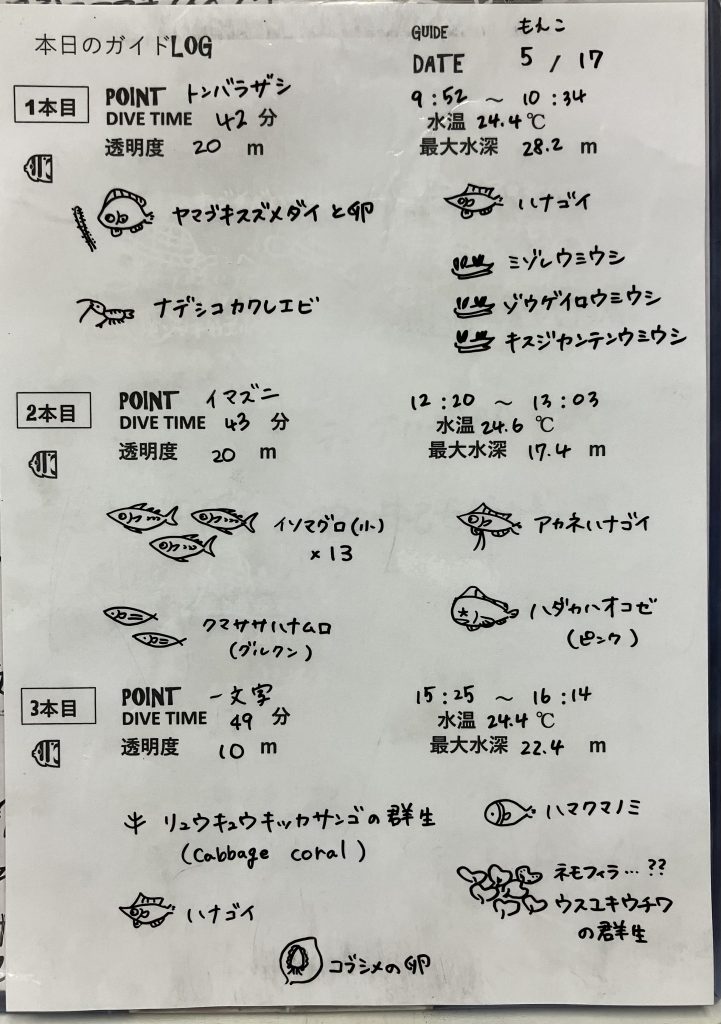 本日のガイドLOG
GUIDE もんこ
DATE 5 / 17
1本目
POINT トンバラザシ
9:52 ~ 10:34
DIVE TIME 42 分
水温 24.4℃
透明度 20 m
最大水深 28.2 m
ヤマブキスズメダイと卵
ハナゴイ
ミゾレウミウシ
ナデシコカクレエビ
ゾウゲイロウミウシ
キスジカンテンウミウシ
2本目
POINT イマズニ
12:20 ~ 13:03
DIVE TIME 43 分
水温 24.6 ℃
透明度 20 m
最大水深 17.4 m
イソマグロ(小)
×13
アカネハナゴイ
クマササハナムロ
(グルクン)
ハダカハオコゼ
(ピンク)
3本目
POINT 一文字
15:25 ~ 16:14
DIVE TIME 49 分
水温 24.4℃
透明度 10 m
最大水深 22.4 m
リュウキュウキッカサンゴの群生
(Cabbage coral)
ハマクマノミ
ネモフィラ…??
ウスユキウチワ
の群生
ハナゴイ
コブシメの卵